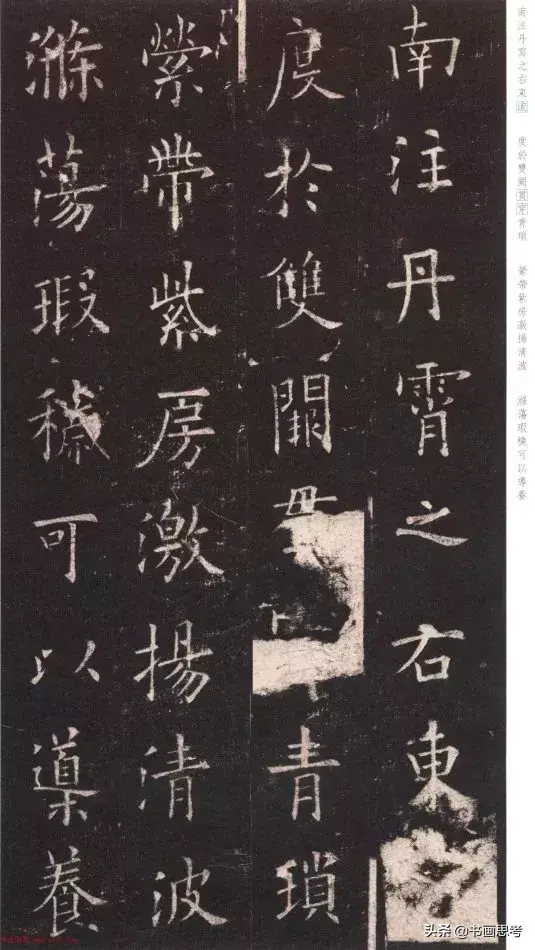 南注丹霄之右東流　度於雙闕貫穿青瑣　縈帶紫房激揚清波　滌蕩瑕穢可以導養
南注丹霄之右東
度於雙闕青瑣
縈帶紫房激揚清波
滌蕩瑕穢可以導養
头条 @书画思考